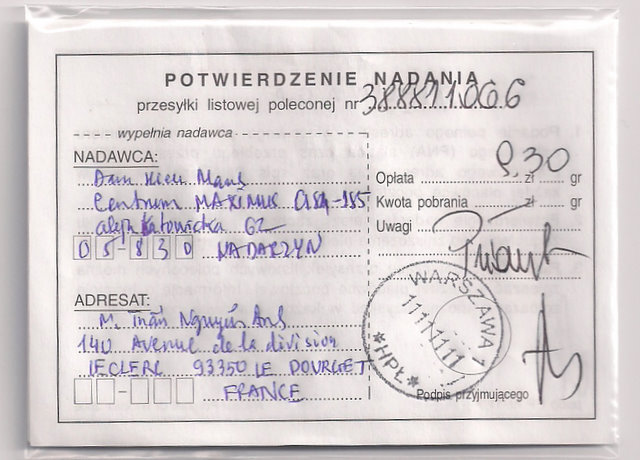 POTWIERDZENIE NADANIA
przesyłki listowej poleconej nr 388811.066
wypełnia nadawca
NADAWCA:
Dam Hieu Manh
Centrum MAXIMUS
aleja Katowicka 62
05-830 NADARZYN
Opłata 9,30 zł gr
Kwota pobrania zł gr
Uwagi
ADRESAT:
M. Trần Nguyên Anh
140 Avenue de la division
LECLERC 93350 LE BOURGET
FRANCE
WARSZAWA 1
11111111
*HPŁ*
Podpis przyjmującego